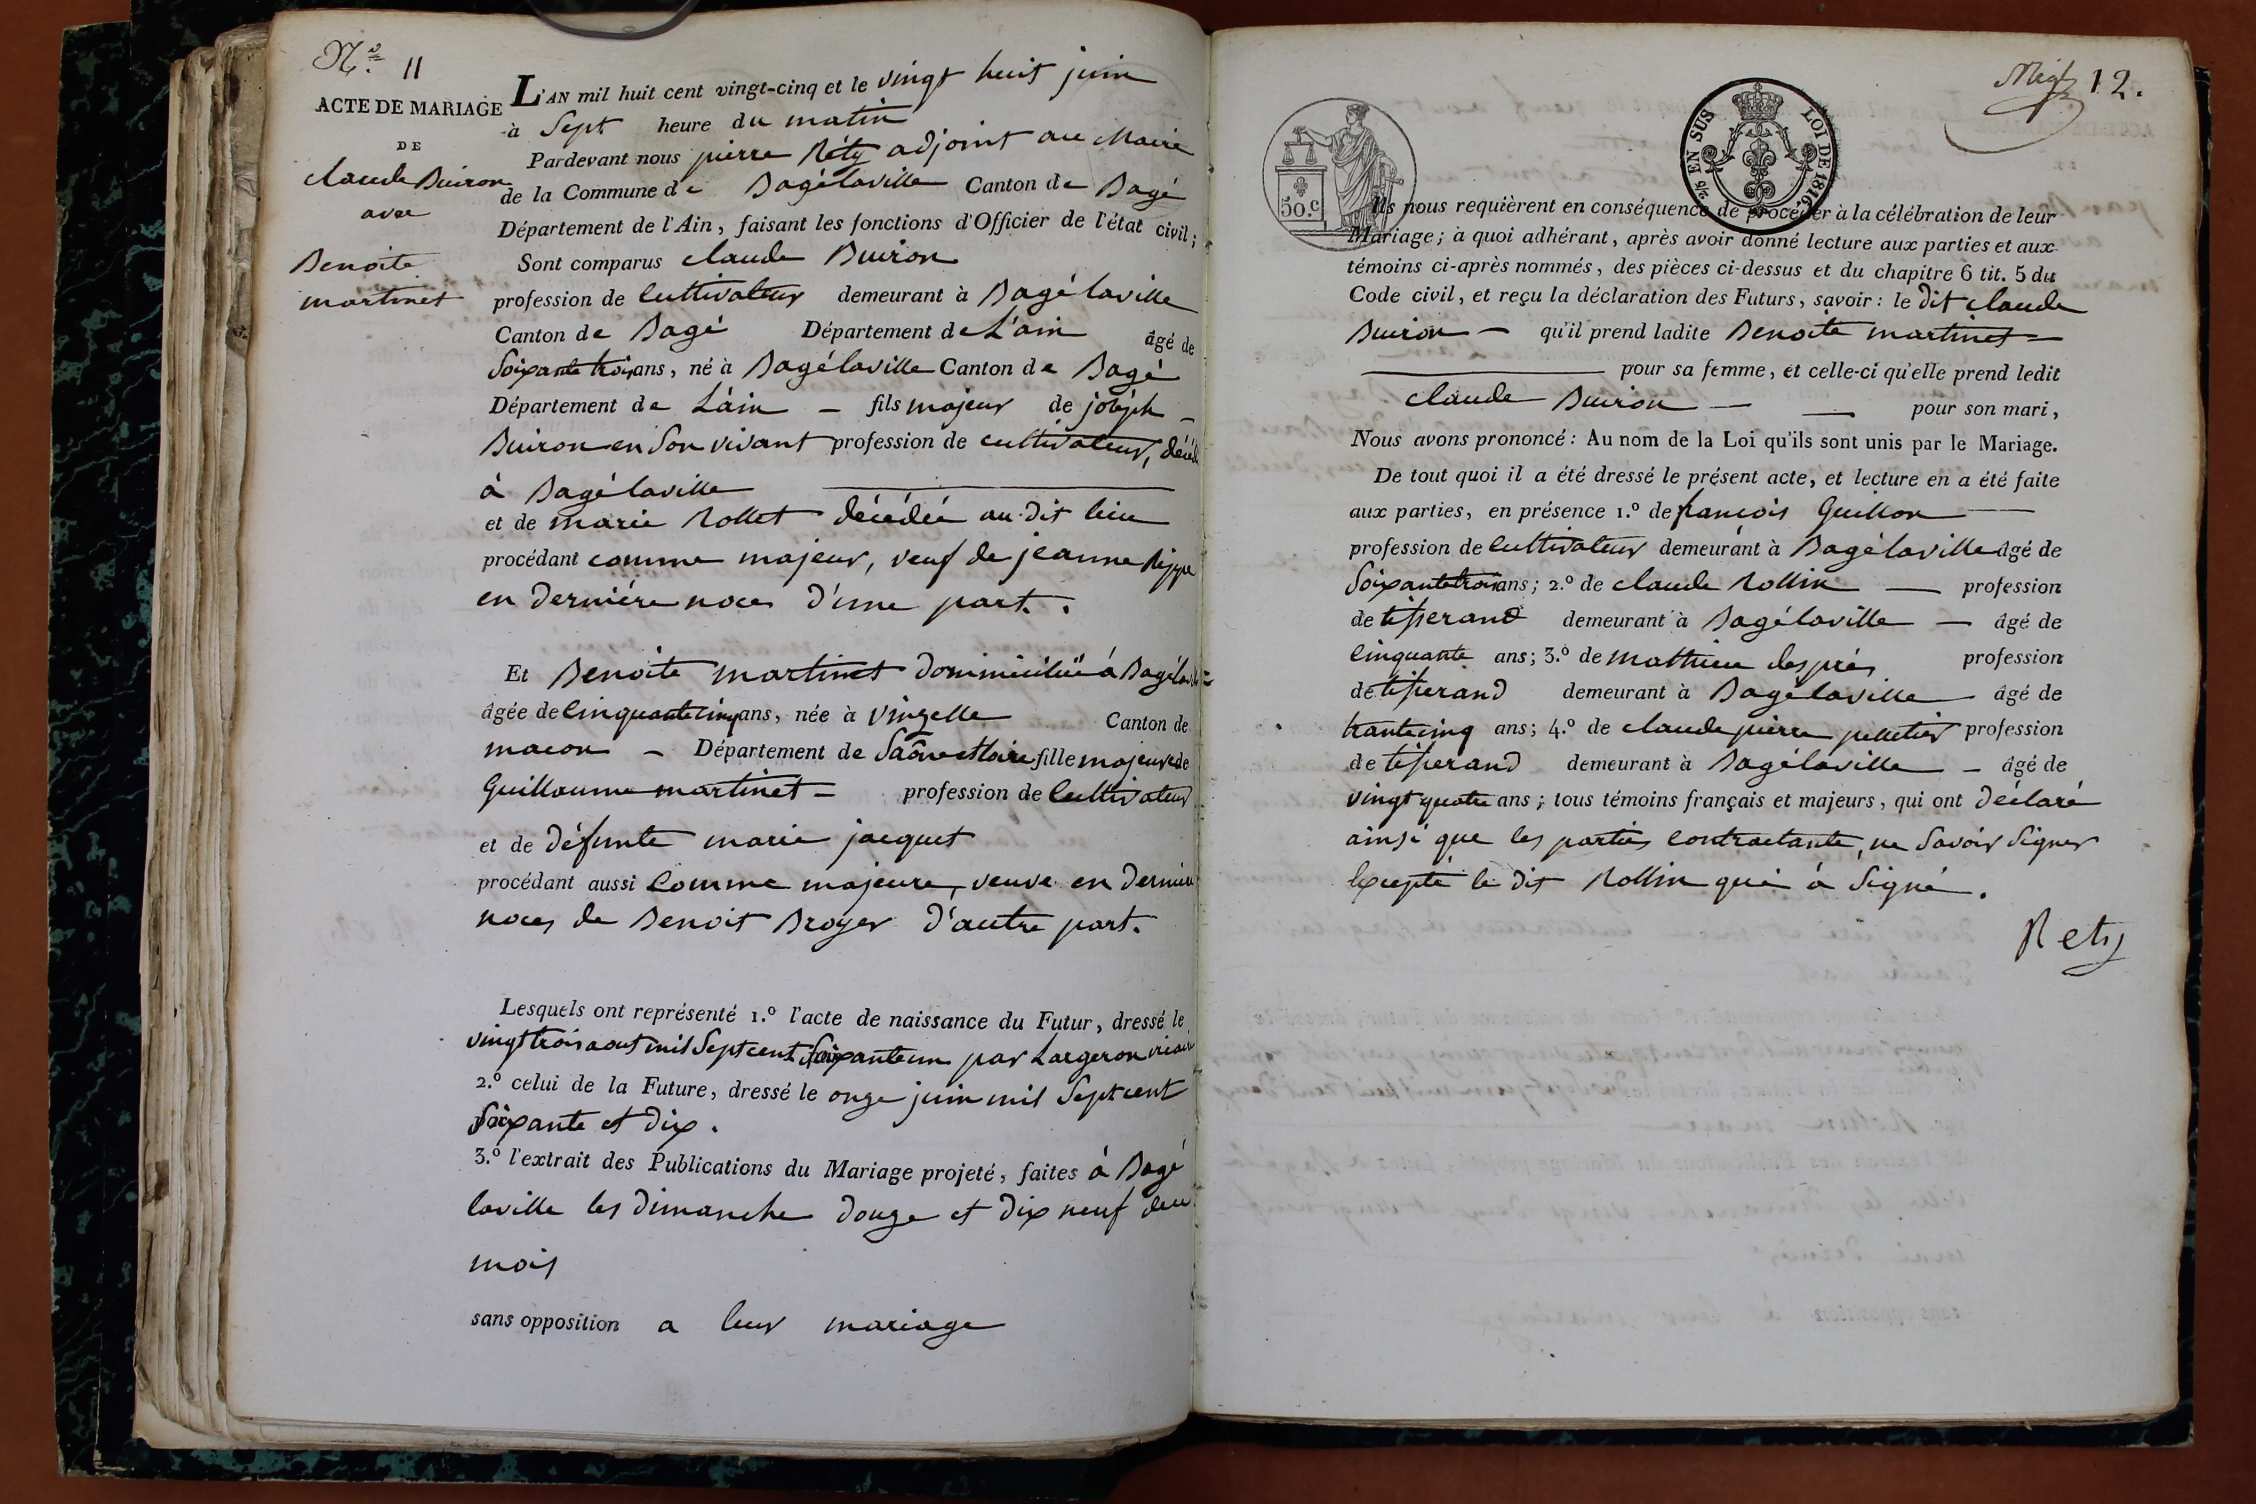 N.º 11
ACTE DE MARIAGE
DE
claude Buiron
avec
Benoite
martinet
L'AN mil huit cent vingt-cinq et le vingt huit juin
à Sept heure du matin
Pardevant nous pierre Réty adjoint au Maire
de la Commune de Bagélaville Canton de Bagé
Département de l'Ain, faisant les fonctions d'Officier de l'état civil;
Sont comparus claude Buiron
profession de cultivateur demeurant à Bagélaville
Canton de Bagé Département de L'ain âgé de
Soixante trois ans, né à Bagélaville Canton de Bagé
Département de L'ain – fils majeur de joseph –
Buiron en Son vivant profession de cultivateur, décédé
à Bagélaville
et de marie Rollet décédée au dit lieu
procédant comme majeur, veuf de jeanne
en derniére noces d'une part.
Et Benoite martinet dommiciliée à Bagélaville
âgée de cinquante cinq ans, née à vinzelle Canton de
macon – Département de Saône et loire fille majeure de
Guillaume martinet – profession de cultivateur
et de défunte marie jacquet
procédant aussi comme majeure, veuve en derniere
noces de Benoit Broyer d'autre part.
Lesquels ont représenté 1.º l'acte de naissance du Futur, dressé le
vingt trois aout mil Sept cent Soixante un par Largeron vicaire
2.º celui de la Future, dressé le onze juin mil Sept cent
Soixante et dix.
3.º l'extrait des Publications du Mariage projeté, faites à Bagé
laville les dimanche douze et dix neuf du
mois
sans opposition a leur mariage
12.
50.c
2/5 EN SUS LOI DE 1816.
Ils nous requièrent en conséquence de procéder à la célébration de leur
Mariage; à quoi adhérant, après avoir donné lecture aux parties et aux
témoins ci-après nommés, des pièces ci-dessus et du chapitre 6 tit. 5 du
Code civil, et reçu la déclaration des Futurs, savoir: le dit claude
Buiron – qu'il prend ladite Benoite martinet =
pour sa femme, et celle-ci qu'elle prend ledit
claude Buiron — — pour son mari,
Nous avons prononcé: Au nom de la Loi qu'ils sont unis par le Mariage.
De tout quoi il a été dressé le présent acte, et lecture en a été faite
aux parties, en présence 1.º de francois Guillon
profession de cultivateur demeurant à Bagélaville âgé de
Soixante trois ans; 2.º de claude Rollin — profession
de tisserand demeurant à Bagélaville — âgé de
cinquante ans; 3.º de mathieu després profession
de tisserand demeurant à Bagélaville âgé de
trante cinq ans; 4.º de claude pierre pelletier profession
de tisserand demeurant à Bagélaville – âgé de
vingt quatre ans; tous témoins français et majeurs, qui ont déclaré
ainsi que les parties contractante, ne Savoir Signer
Excepté le dit Rollin qui à Signé.
Rety